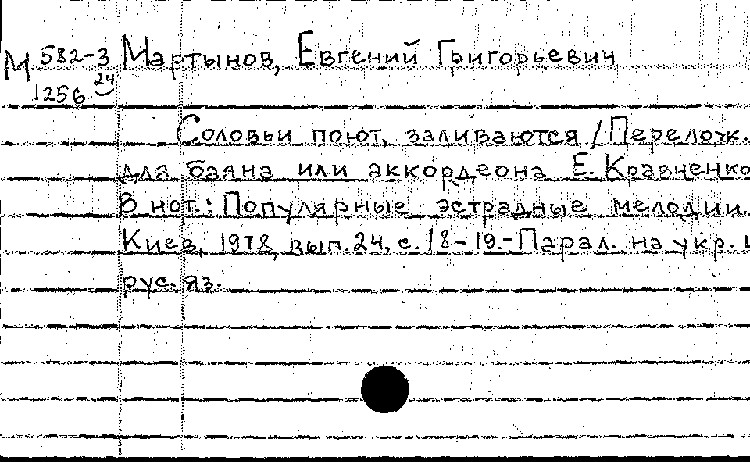 М 532-3 Мартынов, Евгений Григорьевич
1256 24
Соловьи поют, заливаются / Перелож.
для баяна или аккордеона Е. Кравченко
В нот.: Популярные эстрадные мелодии.
Киев, 1978, вып. 24, с. 18-19.-Парал. на укр. и
рус. яз.